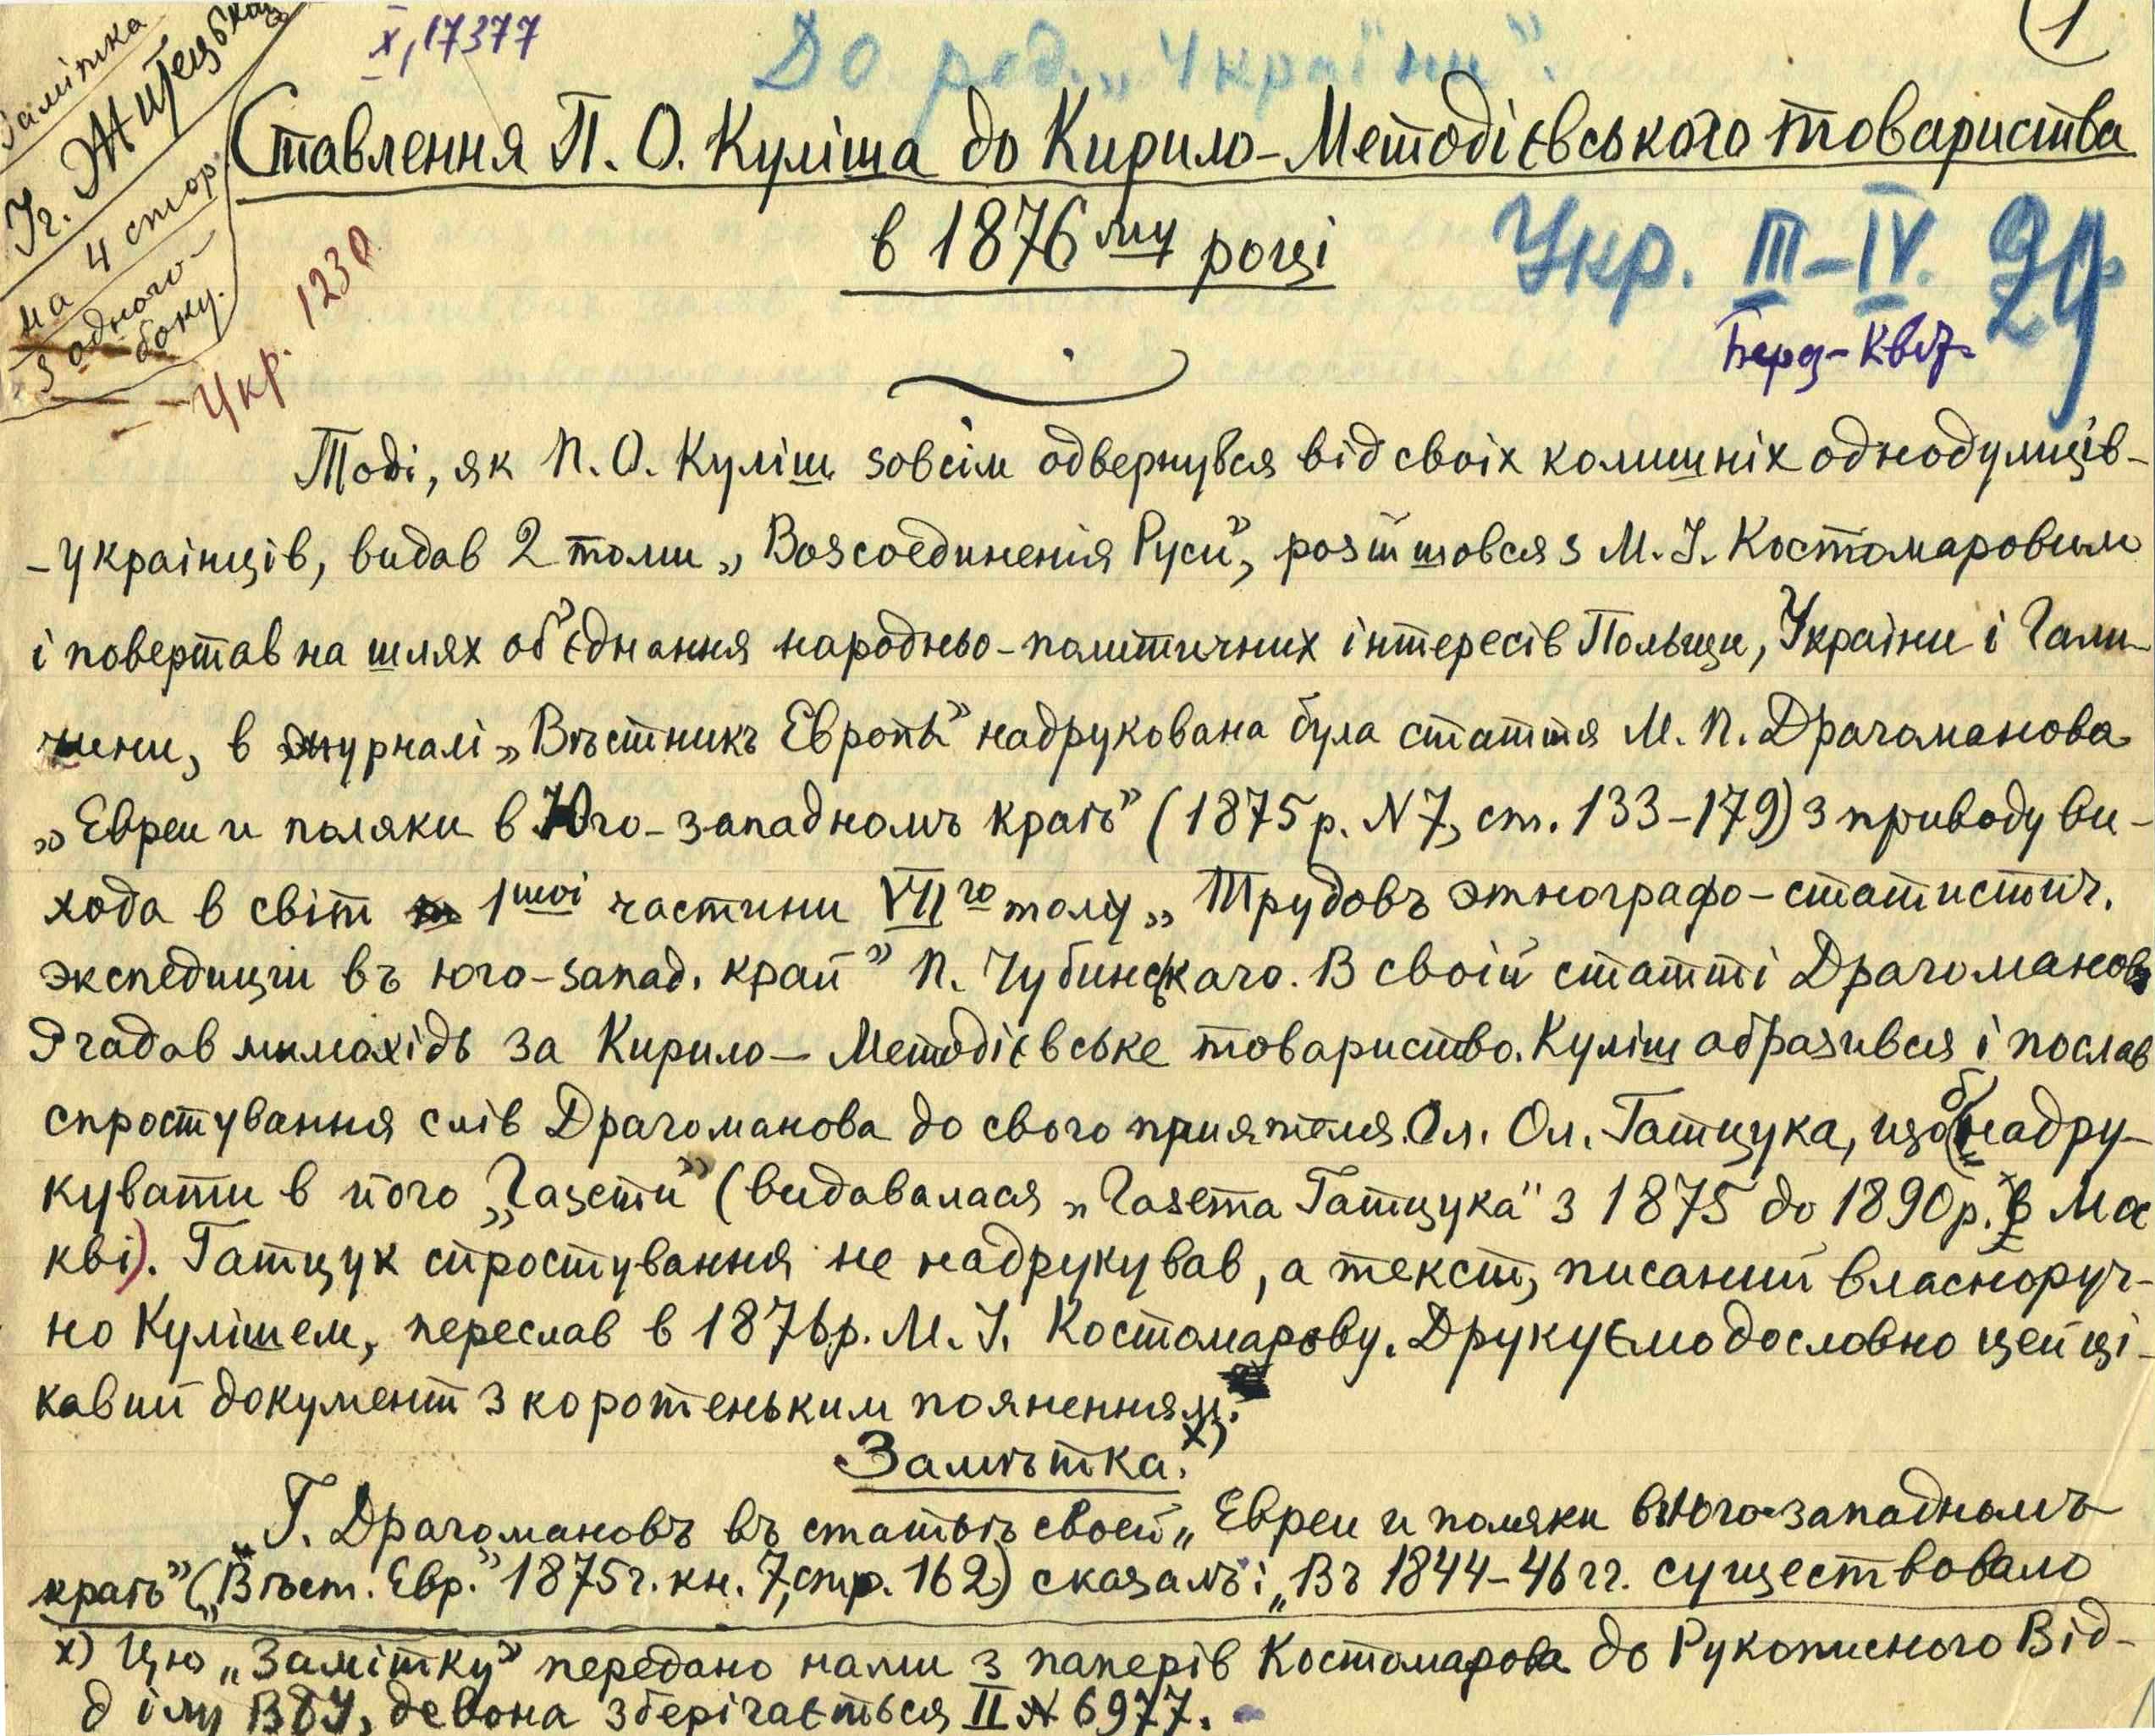 Замітка
Гг. Житецька
на 4 стор.
з одного
боку.
X, 17377
До ред. „України".
1
Укр. 1230
Ставлення П. О. Куліша до Кирило-Методієвського товариства
в 1876му році
Укр. III–IV. 29
Берез-Квіт
Тоді, як П. О. Куліш зовсім одвернувся від своіх колишніх однодумців-
-украінців, видав 2 томи „Возсоединенія Руси", розійшовся з М. І. Костомаровим
і повертав на шлях об'єднання народньо-політичних інтересів Польщи, Украіни і Гали-
чини, в журналі „Вѣстникъ Европы" надрукована була стаття М. П. Драгоманова
„Евреи и поляки в Юго-западномъ краѣ" (1875 р. N 7, ст. 133–179) з приводу ви-
хода в світ 1шоі частини VIIго тому „Трудовъ этнографо-статистич.
экспедиции въ юго-запад. край" П. Чубинскаго. В своій статті Драгоманов
згадав мимохідь за Кирило-Методієвське товариство. Куліш образився і послав
спростування слів Драгоманова до свого приятеля Ол. Ол. Гатцука, щоб надру-
кувати в його „Газети" (видавалася „Газета Гатцука" з 1875 до 1890 р. в Мос
кві). Гатцук спростування не надрукував, а текст, писаний власноруч-
но Кулішем, переслав в 1876 р. М. І. Костомарову. Друкуємо дословно цей ці-
кавий документ з коротеньким пояненням.
Замѣтка. х)
„Г. Драгомановъ въ статьѣ своей „Евреи и поляки в Юго-западномъ
краѣ" („Вѣст. Евр." 1875 г. кн. 7, стр. 162) сказалъ: „Въ 1844–46 гг. существовало
х) Цю „Замітку" передано нами з паперів Костомарова до Рукописного Від-
ділу ВБУ, де вона зберігається II N 6977.